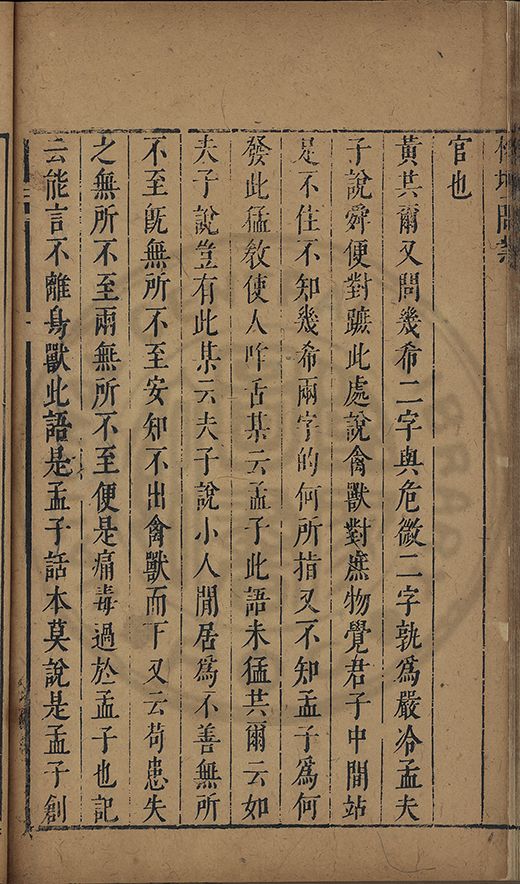 榕壇問業
官也
黃共爾又問幾希二字與危微二字孰為嚴冷孟夫
子說舜便對蹠此處說禽獸對庶物覺君子中間站
足不住不知幾希兩字的何所指又不知孟子為何
發此猛教使人咋舌某云孟子此語未猛共爾云如
夫子說豈有此某云夫子說小人閒居為不善無所
不至旣無所不至安知不出禽獸而下又云苟患失
之無所不至兩無所不至便是痛毒過於孟子也記
云能言不離身獸此語是孟子話本莫說是孟子創